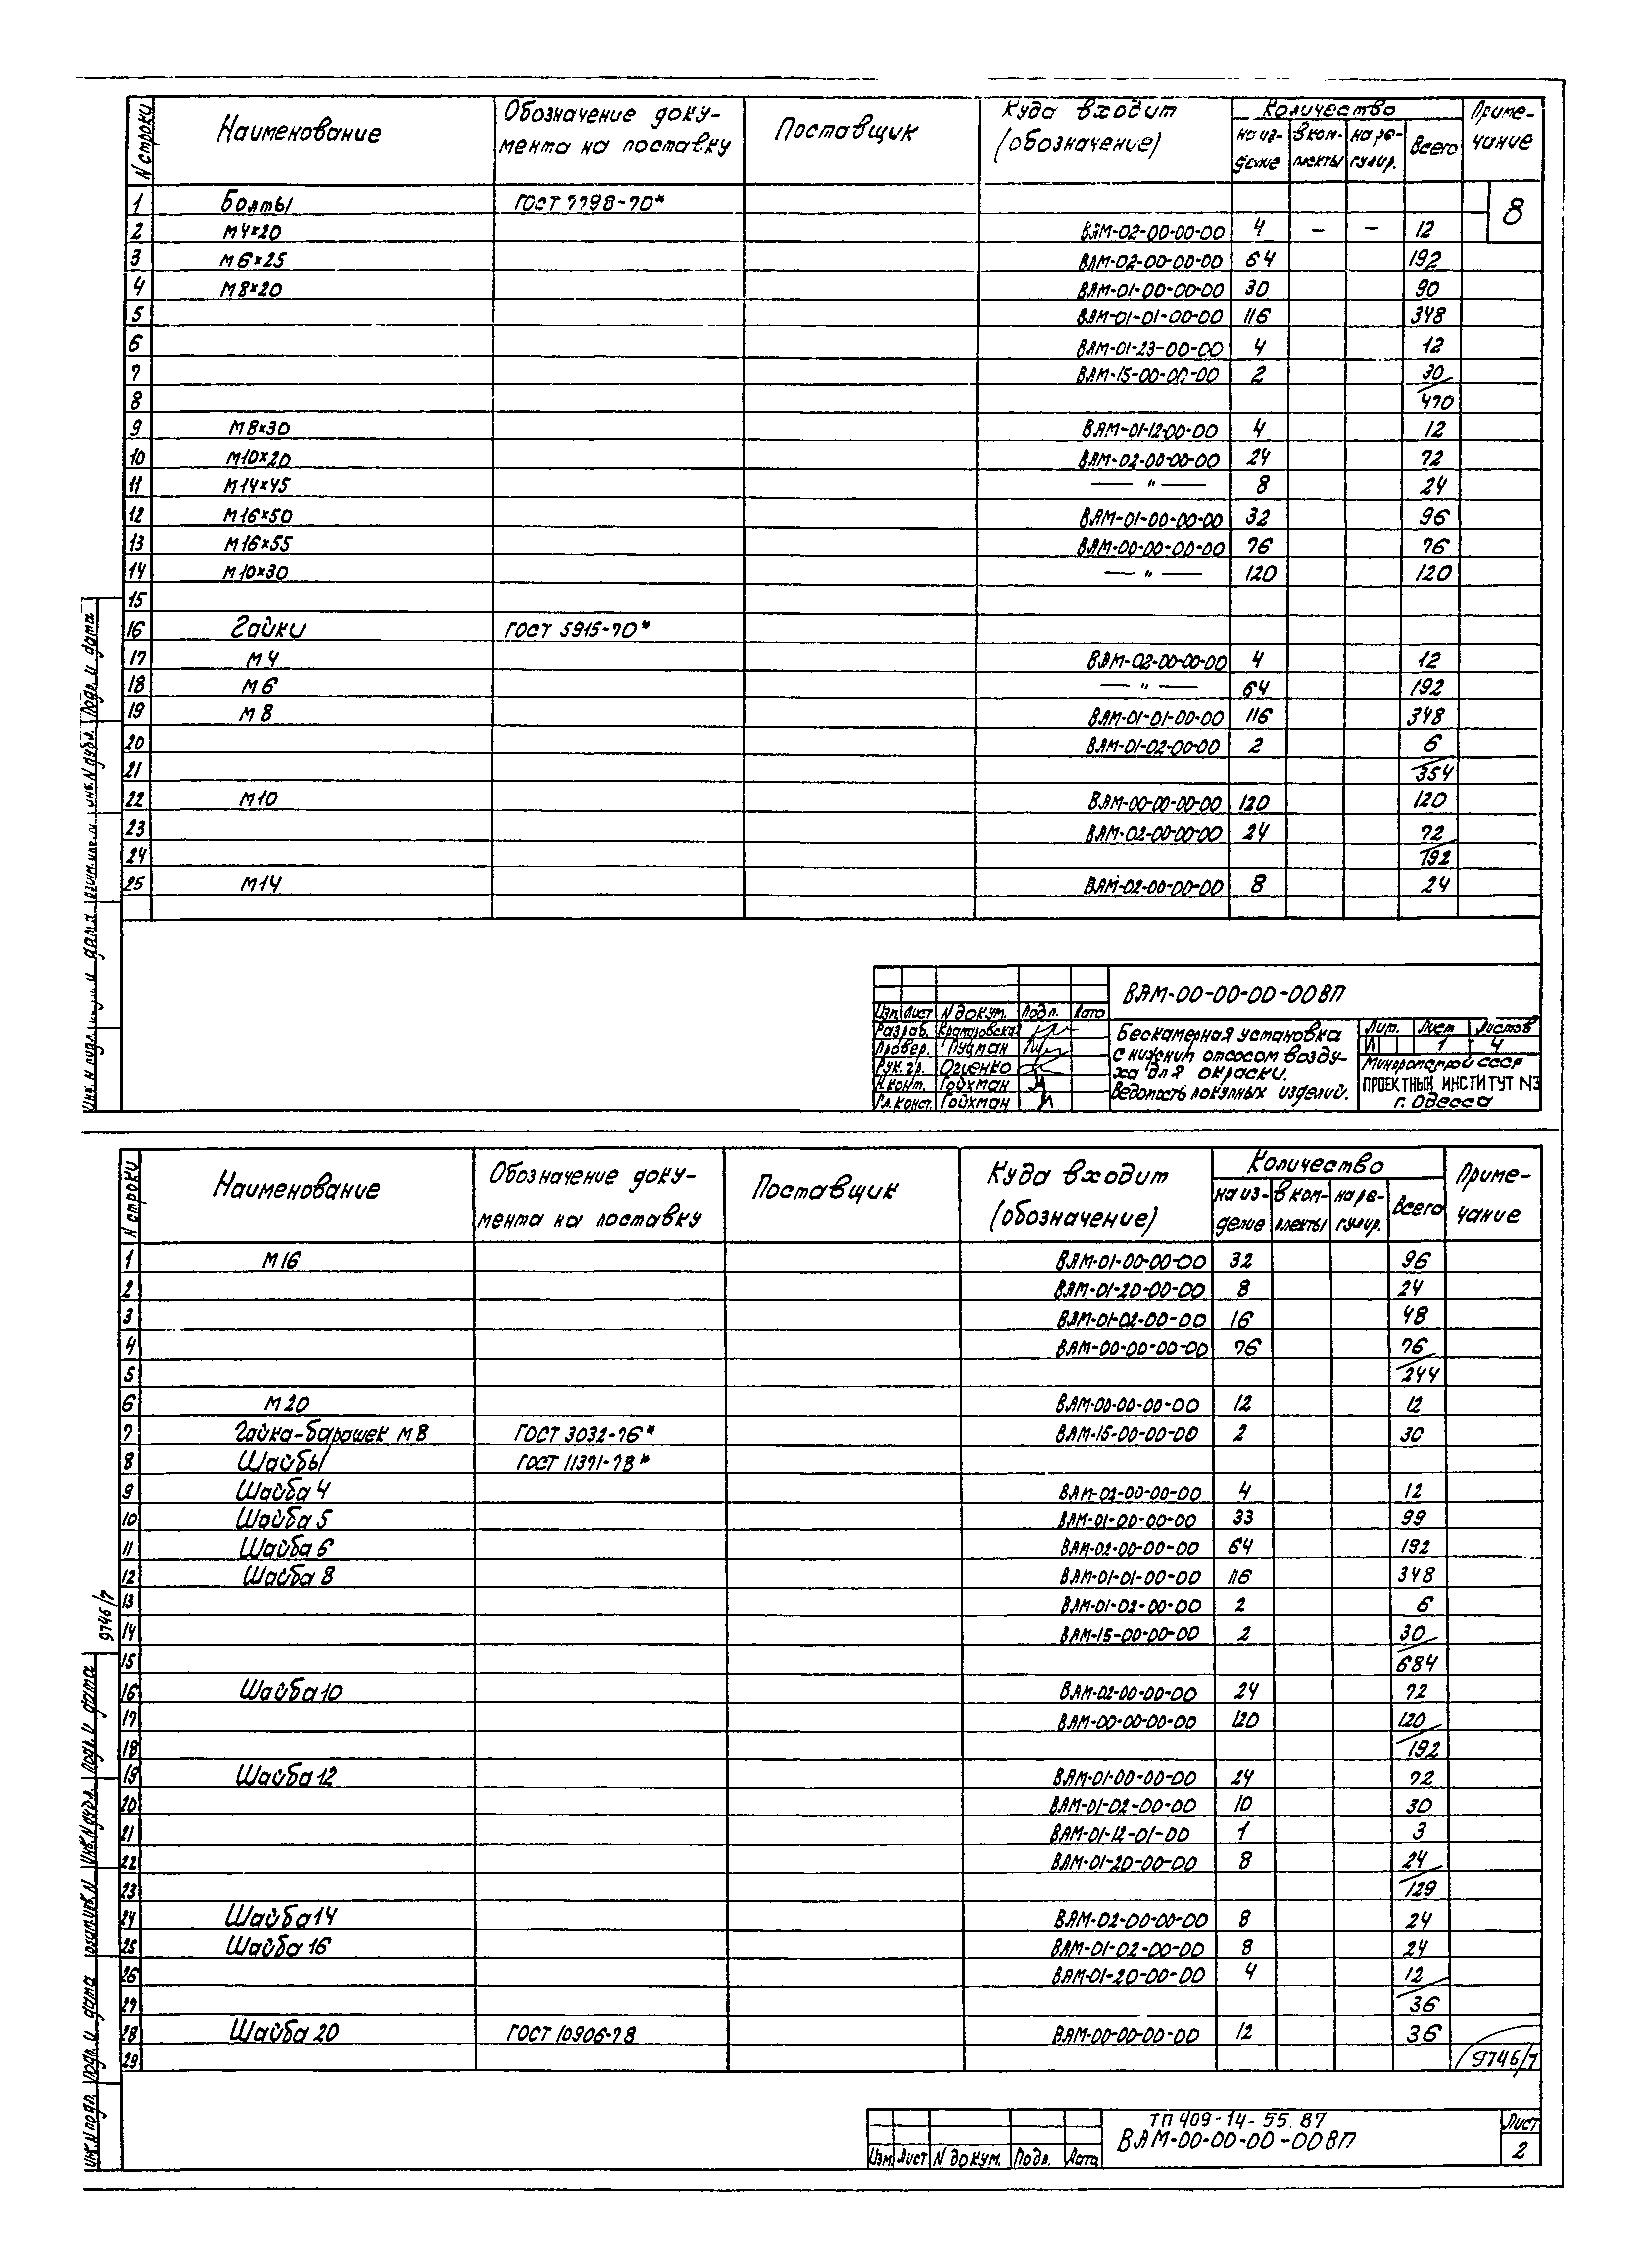 N строки Наименование Обозначение доку- Поставщик Куда входит Количество Приме-
мента на поставку (обозначение) на из- в ком- на ре- Всего чание
делие плекты гулир.
1 Болты ГОСТ 7798-70* 8
2 М4×20 ВАМ-02-00-00-00 4 — — 12
3 М6×25 ВАМ-02-00-00-00 64 192
4 М8×20 ВАМ-01-00-00-00 30 90
5 ВАМ-01-01-00-00 116 348
6 ВАМ-01-23-00-00 4 12
7 ВАМ-15-00-00-00 2 30
8 470
9 М8×30 ВАМ-01-12-00-00 4 12
10 М10×20 ВАМ-02-00-00-00 24 72
11 М14×45 — " — 8 24
12 М16×50 ВАМ-01-00-00-00 32 96
13 М16×55 ВАМ-00-00-00-00 76 76
14 М10×30 — " — 120 120
15
16 Гайки ГОСТ 5915-70*
17 М4 ВАМ-02-00-00-00 4 12
18 М6 — " — 64 192
19 М8 ВАМ-01-01-00-00 116 348
20 ВАМ-01-02-00-00 2 6
21 354
22 М10 ВАМ-00-00-00-00 120 120
23 ВАМ-02-00-00-00 24 72
24 192
25 М14 ВАМ-02-00-00-00 8 24
Инв. N подл. Подп. и дата Взам. инв. N Инв. N дубл. Подп. и дата
ВАМ-00-00-00-00ВП
Изм. Лист N докум. Подп. Дата
Разраб. Крамаровская
Провер.
Рук. гр. Огиенко
Н. конт. Гойхман
Гл. конст. Гойхман
Бескамерная установка
с нижним отсосом возду-
ха для окраски.
Ведомость покупных изделий.
Лит. Лист Листов
И 1 4
Минпромстрой СССР
ПРОЕКТНЫЙ ИНСТИТУТ N3
г. Одесса
N строки Наименование Обозначение доку- Поставщик Куда входит Количество Приме-
мента на поставку (обозначение) на из- в ком- на ре- Всего чание
делие плекты гулир.
1 М16 ВАМ-01-00-00-00 32 96
2 ВАМ-01-20-00-00 8 24
3 ВАМ-01-02-00-00 16 48
4 ВАМ-00-00-00-00 76 76
5 244
6 М20 ВАМ-00-00-00-00 12 12
7 Гайка-барашек М8 ГОСТ 3032-76* ВАМ-15-00-00-00 2 30
8 Шайбы ГОСТ 11371-78*
9 Шайба 4 ВАМ-02-00-00-00 4 12
10 Шайба 5 ВАМ-01-00-00-00 33 99
11 Шайба 6 ВАМ-02-00-00-00 64 192
12 Шайба 8 ВАМ-01-01-00-00 116 348
13 ВАМ-01-02-00-00 2 6
14 ВАМ-15-00-00-00 2 30
15 684
16 Шайба 10 ВАМ-02-00-00-00 24 72
17 ВАМ-00-00-00-00 120 120
18 192
19 Шайба 12 ВАМ-01-00-00-00 24 72
20 ВАМ-01-02-00-00 10 30
21 ВАМ-01-12-01-00 1 3
22 ВАМ-01-20-00-00 8 24
23 129
24 Шайба 14 ВАМ-02-00-00-00 8 24
25 Шайба 16 ВАМ-01-02-00-00 8 24
26 ВАМ-01-20-00-00 4 12
27 36
28 Шайба 20 ГОСТ 10906-78 ВАМ-00-00-00-00 12 36
29 9746/7
9746/7
Инв. N подл. Подп. и дата Взам. инв. N Инв. N дубл. Подп. и дата
ТП 409-14-55.87
ВАМ-00-00-00-00ВП
Изм. Лист N докум. Подп. Дата
Лист
2